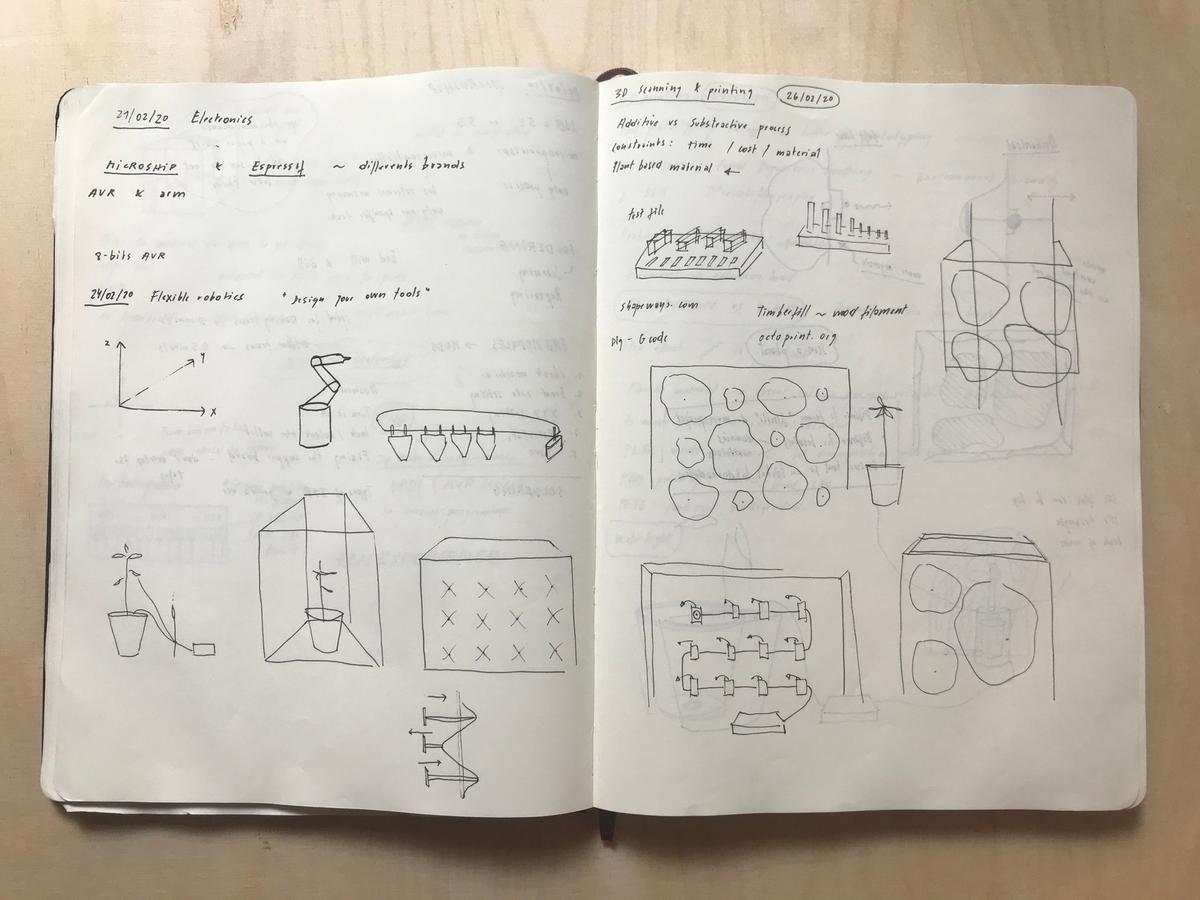 21/02/20 Electronics
Microship & Espressif ~ differents brands
AVR & arm
8-bits AVR
24/02/20 Flexible robotics "Design your own tools"
z
y
x
3D scanning & printing 26/02/20
Additive vs Substractive process
constraints: time / cost / material
Plant based material ←
test file
shapeways.com
Timberfill ~ wood filament
octoprint.org
G code